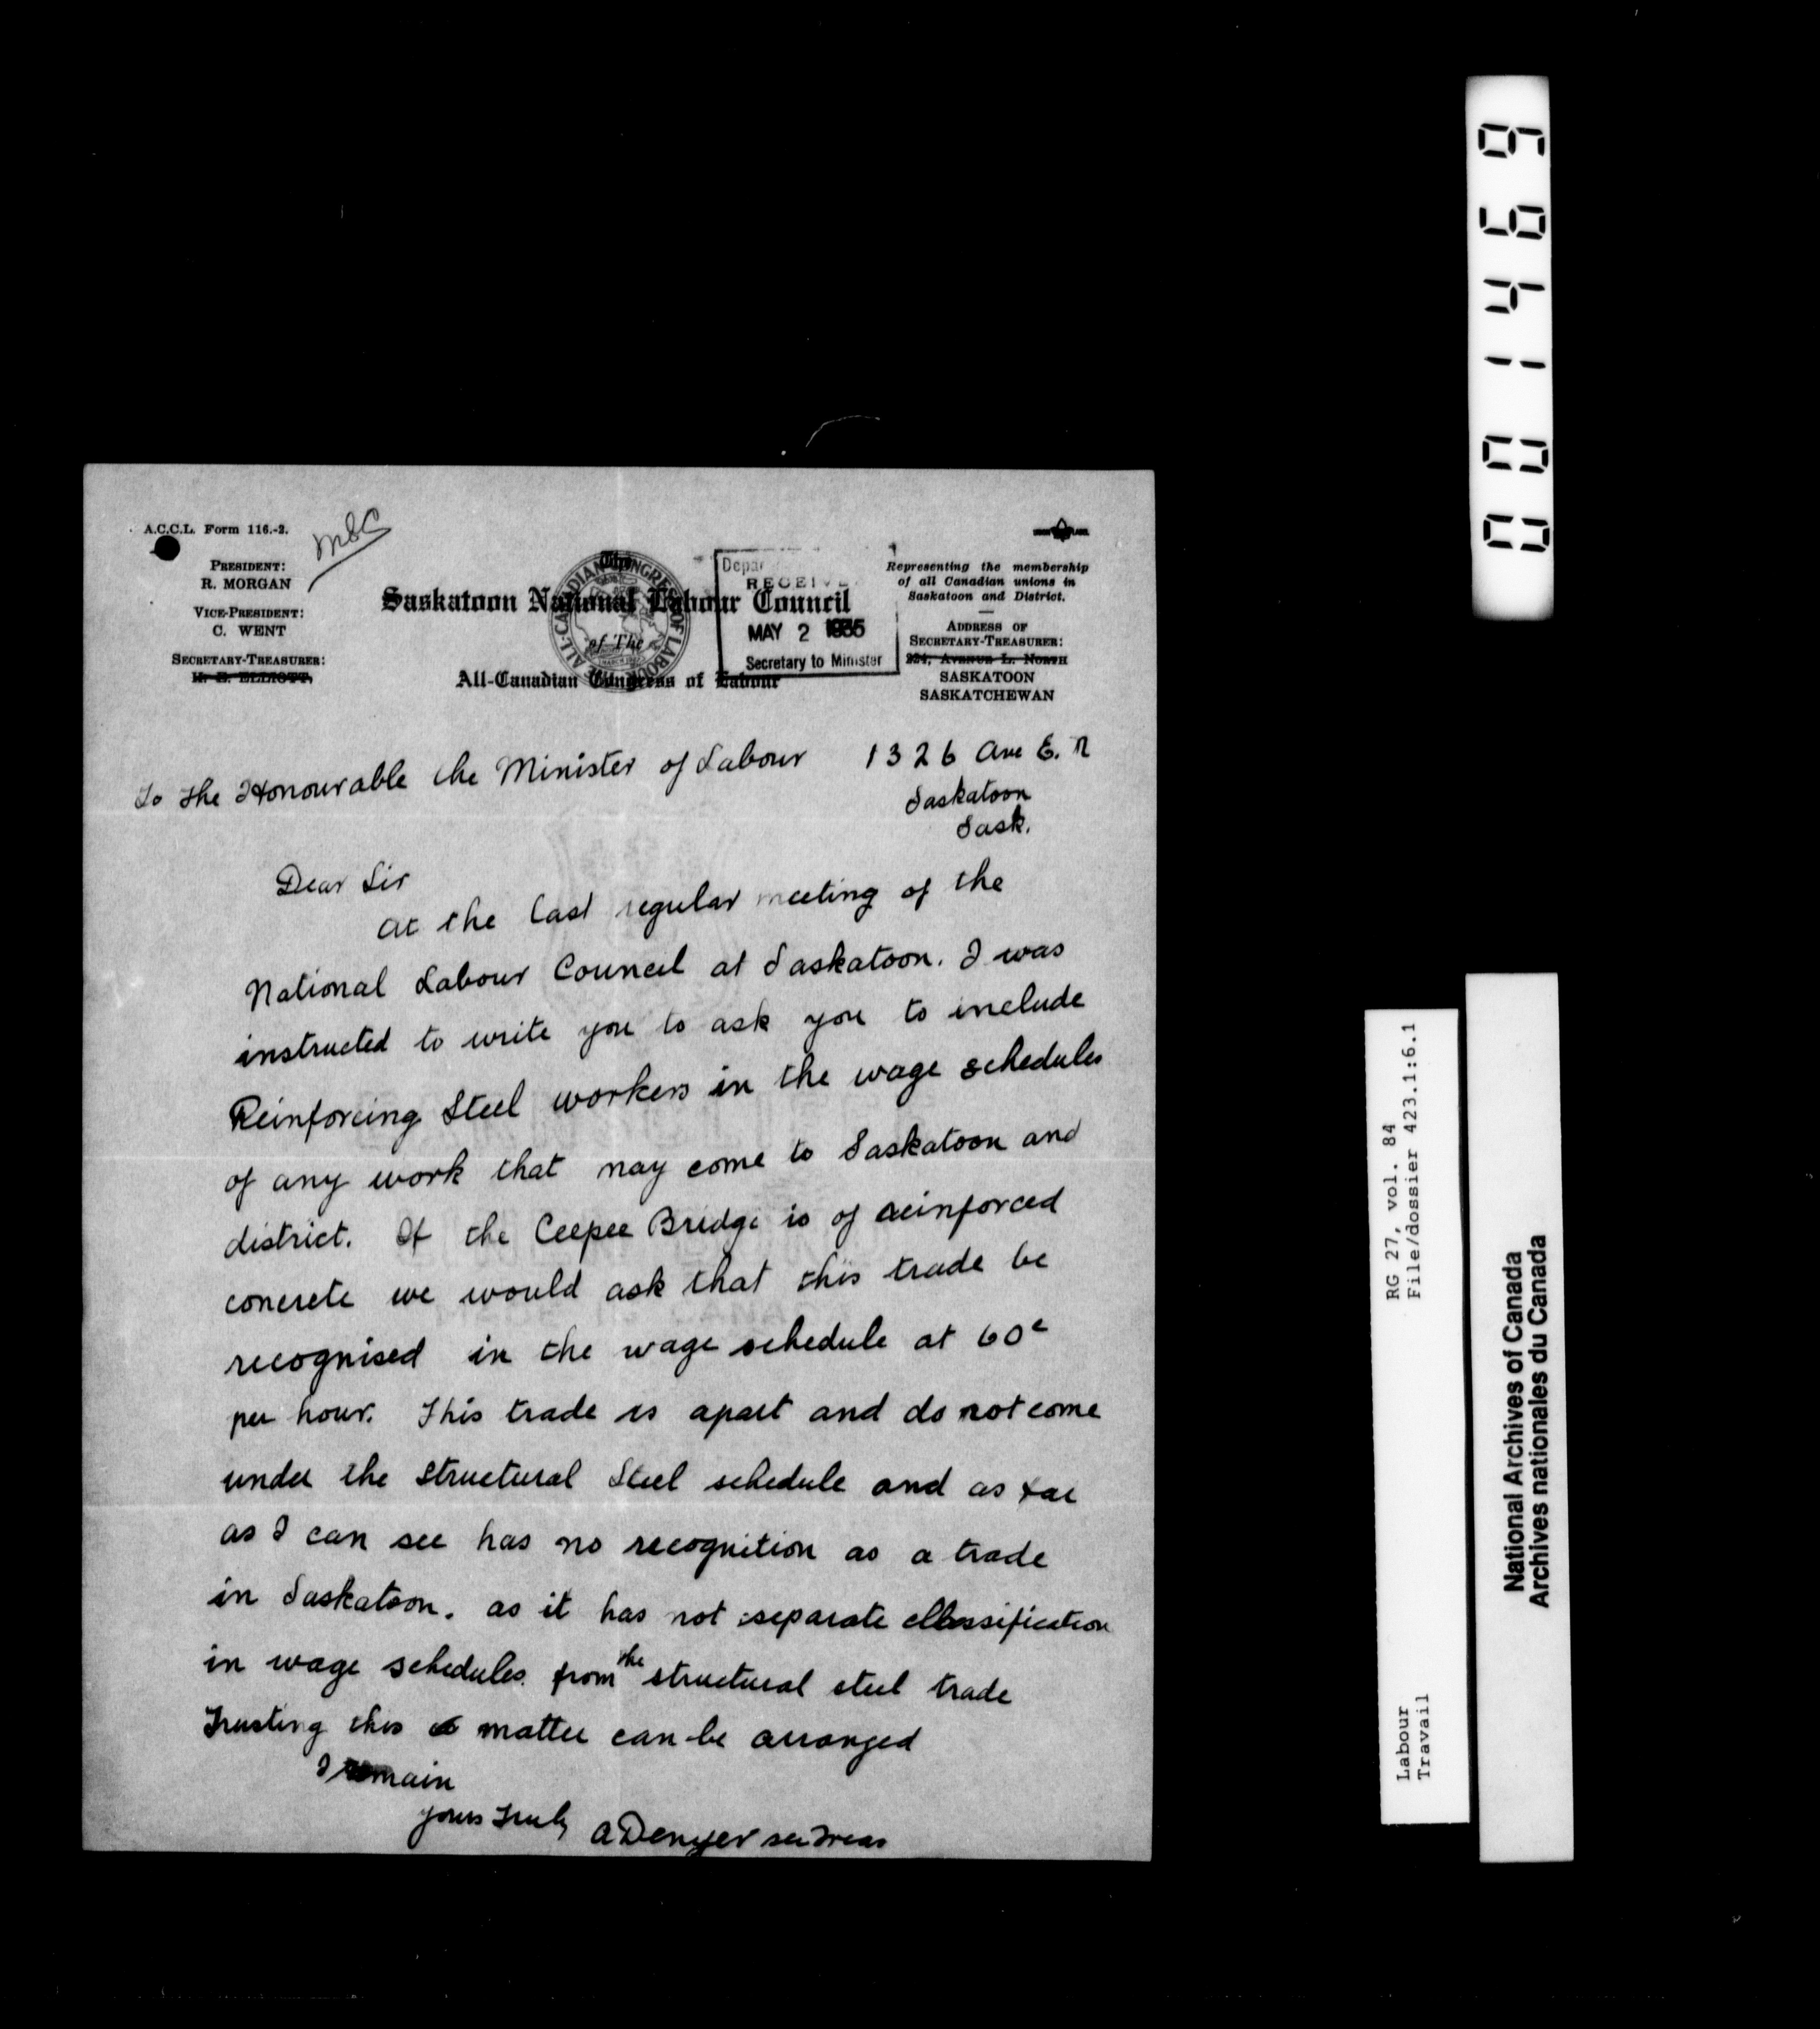 A.C.C.L. Form 116.-2.
PRESIDENT:
R. MORGAN
VICE-PRESIDENT:
C. WENT
SECRETARY-TREASURER:
The
Saskatoon National Labour Council
of The
All-Canadian Congress of Labour
ALL-CANADIAN CONGRESS OF LABOUR
RECEIVE
MAY 2 1935
Secretary to Minister
Representing the membership
of all Canadian unions in
Saskatoon and District.
ADDRESS OF
SECRETARY-TREASURER:
224, AVENUE L. NORTH
SASKATOON
SASKATCHEWAN
To the Honourable the Minister of Labour
1326 Ave E. N
Saskatoon
Sask.
Dear Sir
At the last regular meeting of the
National Labour Council at Saskatoon. I was
instructed to write you to ask you to include
Reinforcing Steel workers in the wage schedules
of any work that may come to Saskatoon and
district. If the Ceepee Bridge is of reinforced
concrete we would ask that this trade be
recognised in the wage schedule at 60c
per hour. This trade is apart and do not come
under the structural Steel schedule and as far
as I can see has no recognition as a trade
in Saskatoon. as it has not separate classification
in wage schedules from the structural steel trade
Trusting this matter can be arranged
I remain
yours Truly
A Denyer sec Treas
001469
RG 27, vol. 84
File/dossier 423.1:6.1
Labour
Travail
National Archives of Canada
Archives nationales du Canada